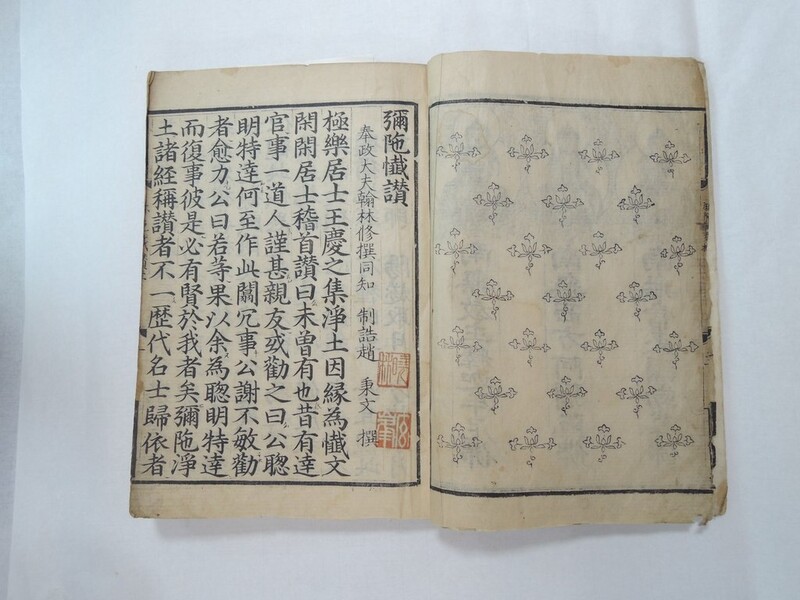 彌陁懺讃
奉政大夫翰林修撰同知 制誥趙 秉文 撰
極樂居士王慶之集淨土因緣為懺文
閑閑居士稽首讃曰未曽有也昔有達
官事一道人謹甚親友或勸之曰公聦
明特達何至作此闒冗事公謝不敏勸
者愈力公曰若等果以余為聦明特達
而復事彼是必有賢於我者矣彌陁淨
土諸經稱讃者不一歷代名士歸依者